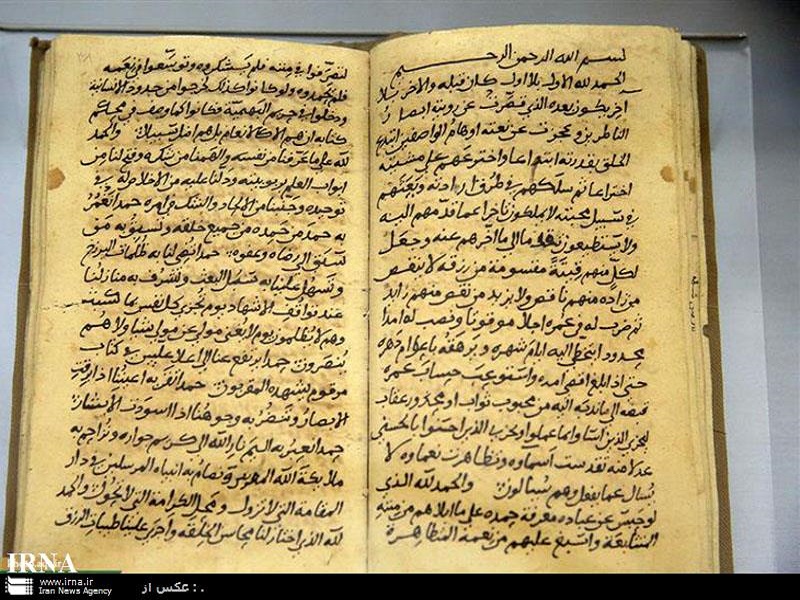 بسم الله الرحمن الرحيم
الحمد لله الاول بلا اول كان قبله والآخر بلا
آخر يكون بعده الذي قصرت عن رويته ابصار
الناظرين وعجزت عن نعته اوهام الواصفين ابتدع
الخلق بقدرته ابتداعا واخترعهم على مشيته
اختراعا ثم سلك بهم طريق ارادته وبعثهم
في سبيل محبته لا يملكون تاخيرا عما قدمهم اليه
ولا يستطيعون الى ما اخرهم عنه وجعل
لكل منهم قيتة مقسومة من رزقه لا ينقص
من زاده منهم ناقص ولا يزيد من نقص منهم زايد
ثم ضرب له في عمره اجلا موقوتا ونصب له امدا
محدودا يتخطى اليه ايام ويرهقه باعوام دهره
حتى اذا بلغ اقصى امده واستوعب حساب عمره
قبضه الى ما ندبه اليه من محبوب ثواب او محذور عقاب
ليجزي الذين اساوا بما عملوا ويجزي الذين احسنوا بالحسنى
عدلا منه تقدست اسماوه وتظاهرت نعماوه لا
يسال عما يفعل وهم يسالون والحمد لله الذي
لو حبس عن عباده معرفة حمده على ما ابلاهم من مننه
المتتابعة واسبغ عليهم من نعمه المتظاهرة
لتصرفوا في مننه فلم يشكروه وتوسعوا في نعمه
فلم يحمدوه ولو كانوا كذلك لخرجوا من حدود الانسانية
ودخلوا في حريم البهيمية فكانوا كما وصف في محكم
كتابه ان هم الا كالانعام بل هم اضل سبيلا والحمد
لله على ما عرفنا من نفسه والهمنا من شكره وفتح لنا من
ابواب العلم بربوبيته ودلنا عليه من الاخلاص له في
توحيده وجنبنا من الالحاد والشك في امره حمدا نعمر
به حمد من حمده من جميع خلقه ونسبق به من
سبق الى رضاه وعفوه حمدا يضي لنا به ظلمات البرزخ
ويسهل علينا به سبيل المبعث ويشرف به منازلنا
عند مواقف الاشهاد يوم تجزى كل نفس بما كسبت
وهم لا يظلمون يوم لا يغني مولى عن مولى شيئا ولا هم
ينصرون حمدا يرتفع عنا الى اعلا عليين في كتاب
مرقوم يشهده المقربون حمدا تقر به اعيننا اذا برقت
الابصار وتبيض به وجوهنا اذا اسودت الابشار
حمدا نعتق به اليم نار الله الى كريم جواره ونزاحم به
ملائكة الله المقربين ونضام به انبياه المرسلين في دار
المقامة التي لا تزول ومحل الكرامة التي لا تحول والحمد
لله الذي اختار لنا محاسن الخلق واجرى علينا طيبات الرزق
IRNA
www.irna.ir
Iran News Agency
عکس از : .